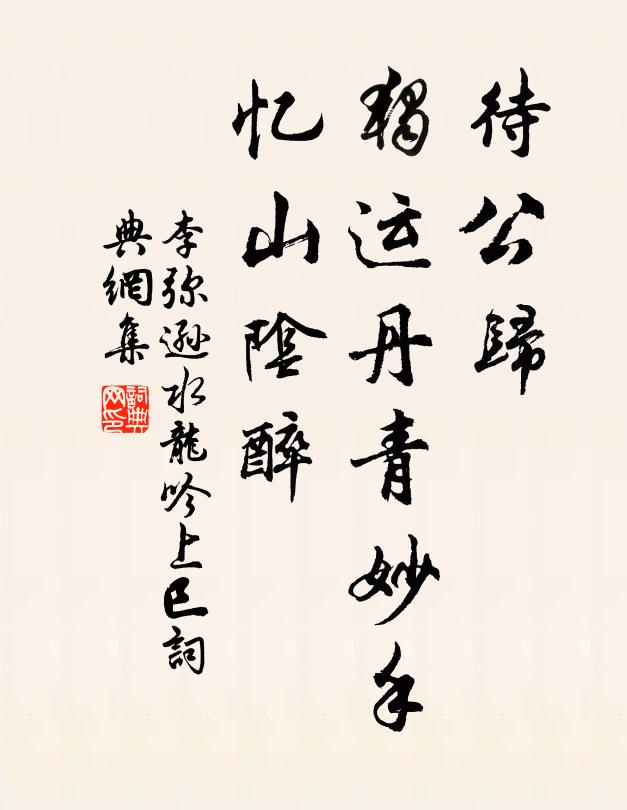 待公歸
獨运丹青妙手
忆山陰醉
李弥遜水龍吟上巳詞
典網集
詞典網印